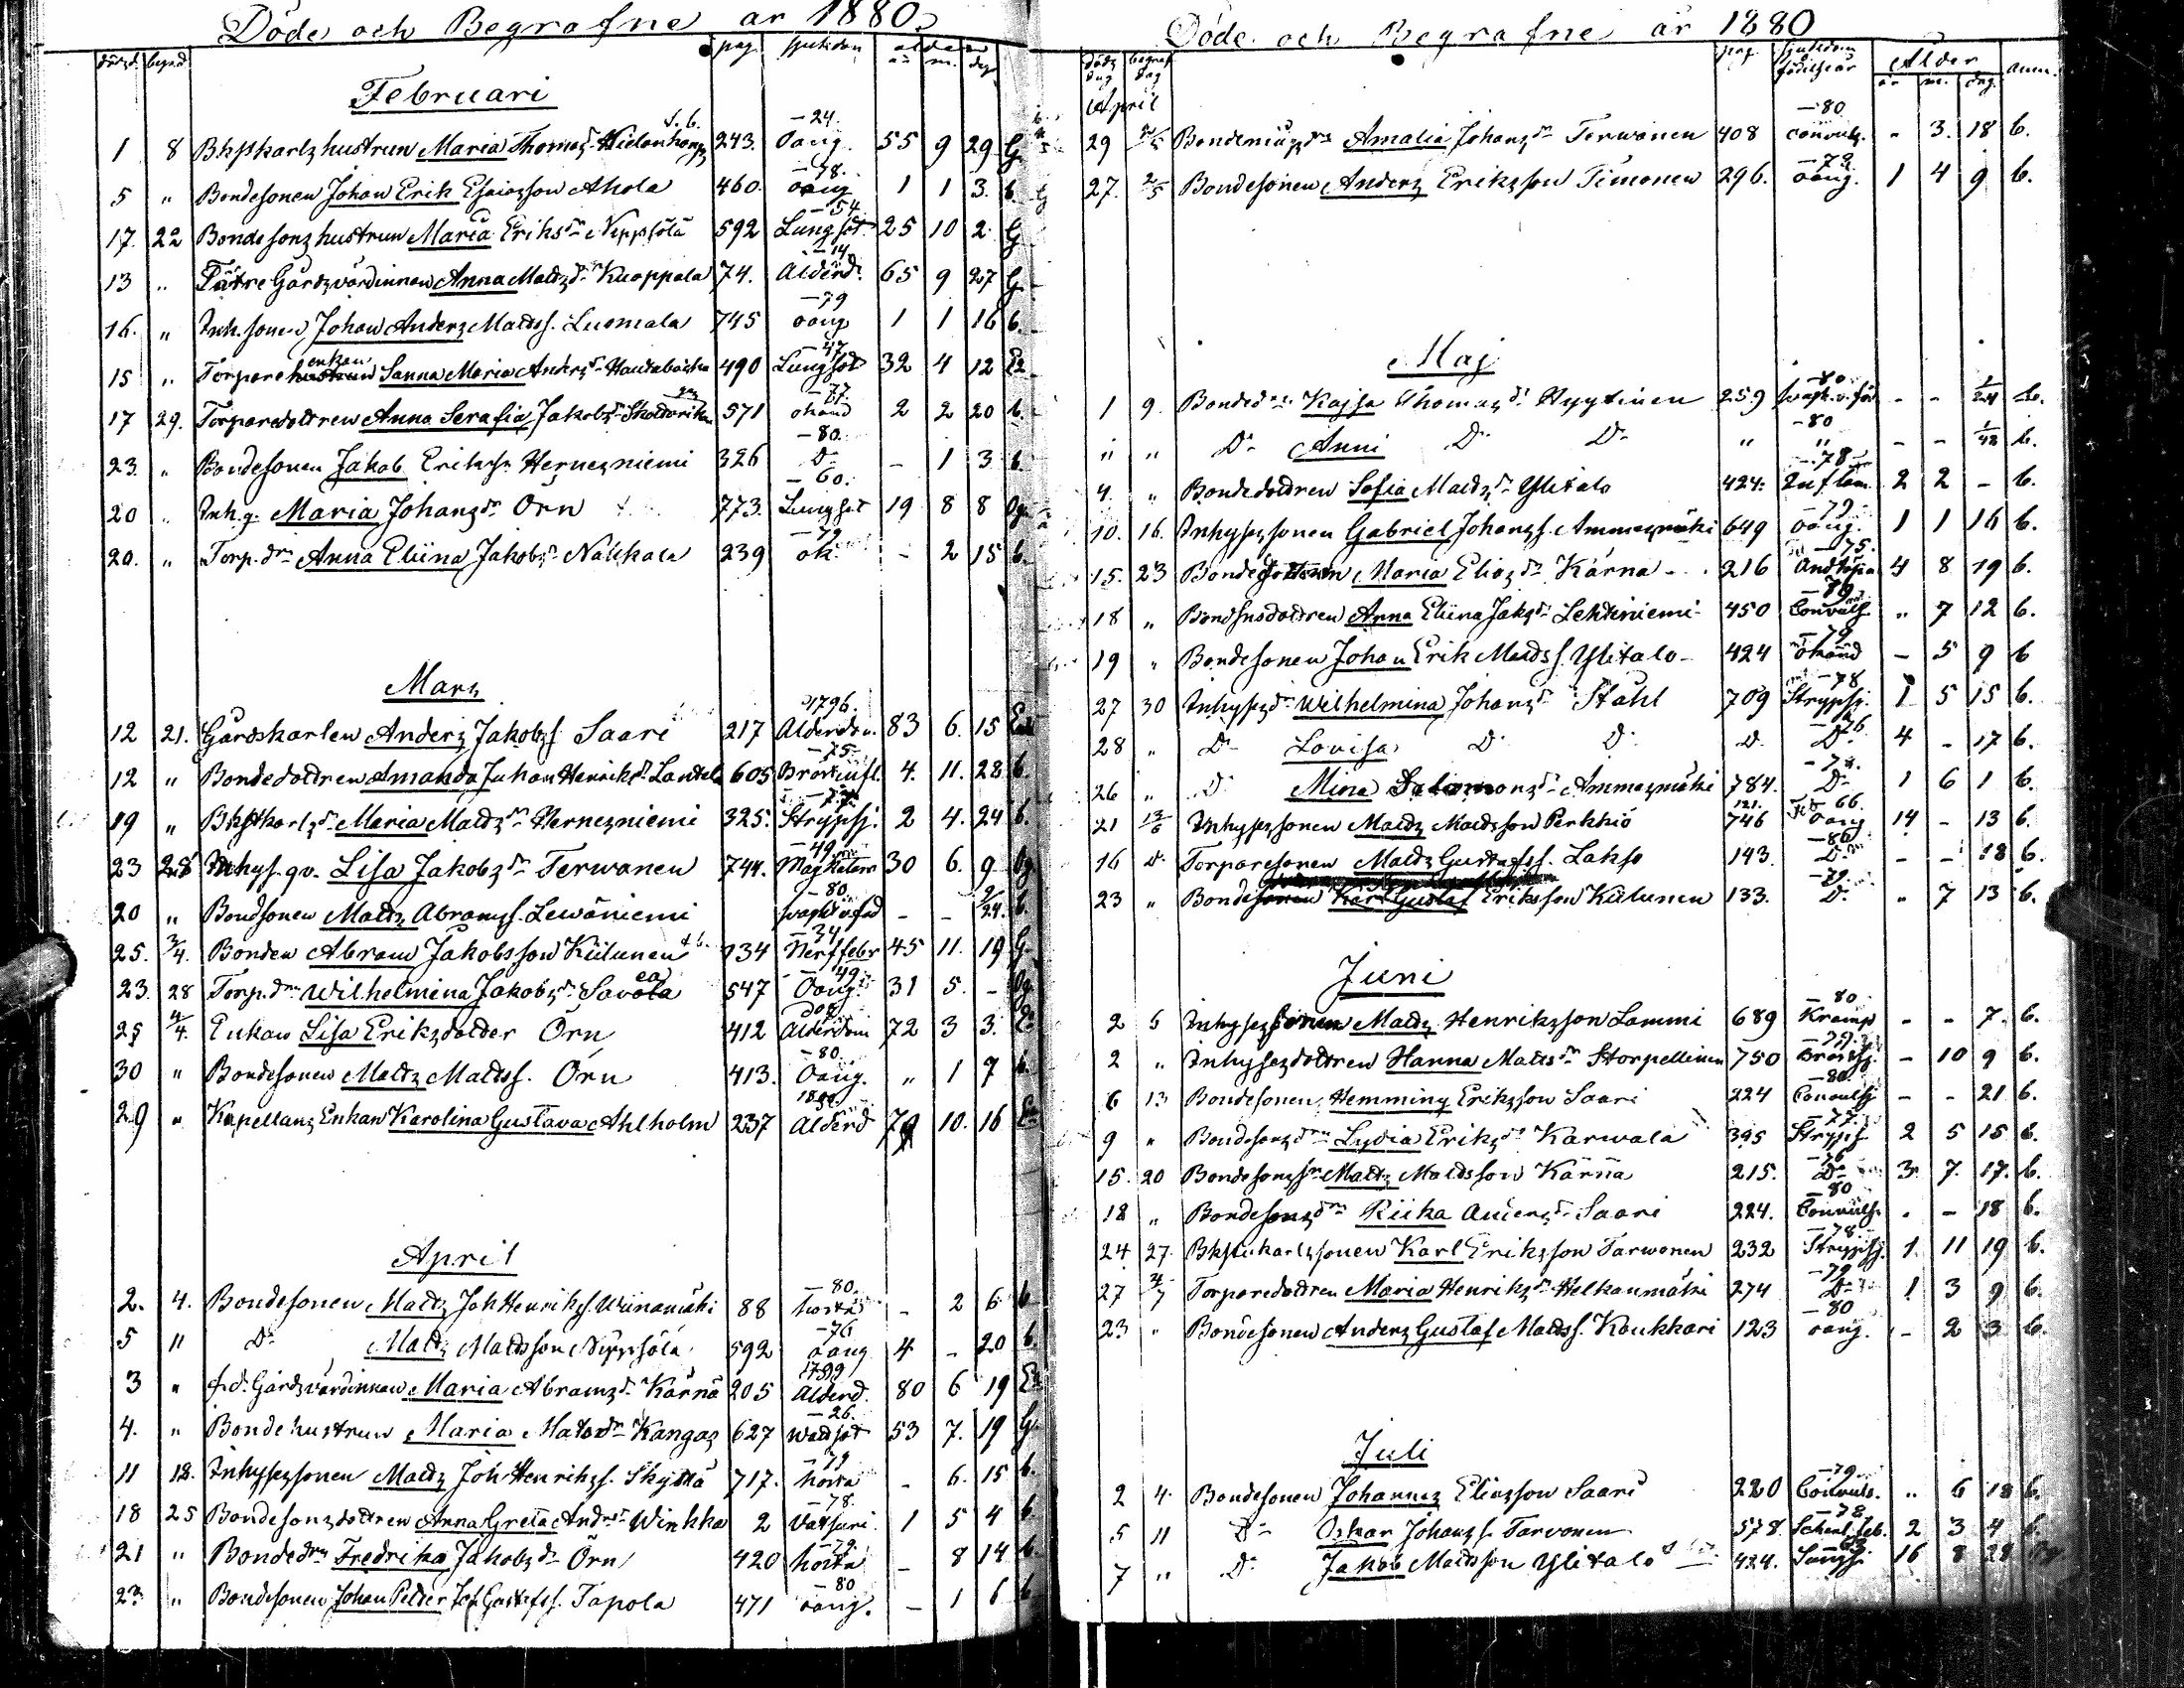 Döde och Begrafne år 1880.
dödsd. begrd. pag. sjukdom ålder
år m. dag
Februari
1 8 Bkfskarlz hustrun Maria Thomasdr 243. -24. oang. 55 9 29 G.
5 " Bondesonen Johan Erik Esaiasson Ahola 460. -78. oang 1 1 3. b.
17. 22 Bondesonz hustrun Maria Eriksdr Nippsölä 592 -54 Lungsot 25 10 2 G
13 " Gårdzvärdinnan Anna Matdzdr Kuoppala 74. -14 Ålderd. 65 9 27 G
16. " Inh. sonen Johan Anderz Matdss. Luomala 745 -79 oang 1 1 16 b.
15 " Torpare enkan Sanna Maria Anderzdr 490 -47 Lungsot 32 4 12 Ek
17 29. Torparedottren Anna Serafia Jakobzdr 571 -77 okänd 2 2 20 b.
23. " Bondesonen Jakob Eriksson Hernezniemi 326 -80. Do - 1 3 b.
20 " Inh. q. Maria Johanzdr Örn 773. -60. Lungsot 19 8 8 Og.
20. " Torp. dr Anna Eliina Jakobsdr Nallkala 239 -79 ok. - 2 15 b.
Mars
12 21. Gårdskarlen Anderz Jakobzs. Saari 217 1796. Ålderdom. 83 6. 15 Enk
12 " Bondedottren Amanda Johan Henriksdr Lantela 605 -75- Bröstinfl. 4. 11. 28 b.
19 " Bkfskarlzdr Maria Matdzdr Hernezniemi 325. -77. Strypsj. 2 4. 24 b.
23 28 Inhys. qv. Lisa Jakobzdr Terwanen 744. -49 Magkatarr 30 6. 9 Og.
20 " Bondsonen Matdz Abramzs. Lewäniemi -80 svaght v. föd - - 9/24. b.
25. 3/4. Bonden Abram Jakobsson Kiilunen 134 -34 Nerffebr 45 11. 19 G.
23. 28 Torp. dr Wilhelmina Jakobzdr Savola 547 -49 Oang. 31 5. - Og.
25 4/4. Enkan Lisa Erikzdotder Örn 412 Ålderdom 72 3 3. Ek
30 " Bondesonen Matdz Matdss. Örn 413. -80. Oang. " 1 7 b.
29 " Kapellanz Enkan Karolina Gustava Ahlholm 237 Ålderd 79 10. 16 Ek
April
2. 4. Bondesonen Matdz Joh Henrikss. Wiinamäki 88 -80. hosta - 2 6 b
5 11 Do Matdz Matdsson Nippsölä 592 -76 oang 4 - 20 b.
3 " f.d. Gårdzvärdinnan Maria Abramzdr Kärnä 205 1799 Ålderd. 80 6 19 Ek
4. " Bondehustrun Maria Matzdr Kangas 627 -26. wattsot 53 7. 19 G.
11 18. Inhysessonen Matdz Joh Henrikss. Skyttä 717. -79 hosta - 6. 15 b.
18 25 Bondesonzdottren Anna Greta Andrsdr Wirkka 2 -78. Vatturi. 1 5 4 b
21 " Bondedrn Fredrika Jakobzdr Örn 420 -79. hosta - 8 14 b.
23 " Bondesonen Johan Petder Jos. Gustafss. Tapola 471 -80 oang. - 1 6 b
Döde och Begrafne år 1880
döds dag begraf dag pag. sjukdom födelseår Ålder år m. dag. anm.
April
29 2/5 Bondemågzdr Amalia Johanzdr Terwanen 408 -80 convuls. " 3. 18 b.
27. 2/5 Bondesonen Anderz Erikzson Timonen 296. -78 oang. 1 4 9 b.
Maj
1 9. Bonded. Kajsa Thomazdr Hyytinen 259 -80 svagh. v. föd - - 1/24 b.
" " Do Anni Do Do " -80 " - - 1/48 b.
4. " Bondedottren Sofia Matdzdr Ylitalo 424. -78 Inflam. 2 2 - b.
10. 16. Inhysessonen Gabriel Johanzs. Ammezmäki 649 -79. oang. 1 1 16 b.
15. 23 Bondedottren Maria Eliazdr Kärnä 216 -75. Andtäppa 4 8 19 b.
18 " Bondsnsdottren Anna Eliina Jakzdr Lehtiniemi 450 -79 Convuls. " 7 12 b.
19 " Bondesonen Johan Erik Matdss. Ylitalo 424 -79 okänd - 5 9 b
27 30 Inhysesdr Wilhelmina Johanzdr Ståhl 709 -78 Strypsj. 1 5 15 b.
28 " Do Lovisa Do Do Do -76. Do 4 - 17 b.
26 " Do Mina Salomonsdr Ammezmäki 784. -78. Do 1 6 1 b.
21 13/6 Inhysessonen Matdz Matdsson Perkhiö 121. 746 -66. oang 14 - 13 b.
16 Do Torparesonen Matdz Gustafss. Lakso 143. -80. Do - - 18 b.
23 " Bondesonen Karl Gustaf Eriksson Kiilunen 133. -79. Do " 7 13 b.
Juni
2 6 Inhysessonen Matdz Henrikzson Lammi 689 -80 Kramp - - 7. b.
2 " Inhysesdottren Hanna Matdsdr Storpellinen 750 -79. Bröstsj. - 10 9 b.
6 13 Bondesonen Hemming Erikzson Saari 224 -80. Convulsj - - 21 b.
9 " Bondsonzdrn Lydia Erikzdr Karwala 395 -77. Stryps 2 5 15 b.
15. 20 Bondesonzsn Matdz Matdsson Kärnä 215. -76 Do 3. 7. 17. b.
18 " Bondesonzdrn Riika Anderzdr Saari 224. -80 Convuls. . - 18 b.
24 27. Bkfskarlzsonen Karl Eriksson Tarwonen 232 -78 Strypsj. 1. 11 19 b.
27 4/7 Torparedottren Maria Henriksdr Helkaumäki 274 -79 Do 1 3 9 b.
23 " Bondesonen Anderz Gustaf Matdss. Koukkari 123 -80 oang. - 2 3 b.
Juli
2 4. Bondesonen Johannez Eliazson Saari 220 -79 Convuls. " 6 18 b.
5 11 Do Oskar Johanzs. Tarvonen 578. -78 2 3 4 b.
7 " Do Jakob Matdsson Ylitalo 424. Lungs. 16 8 28